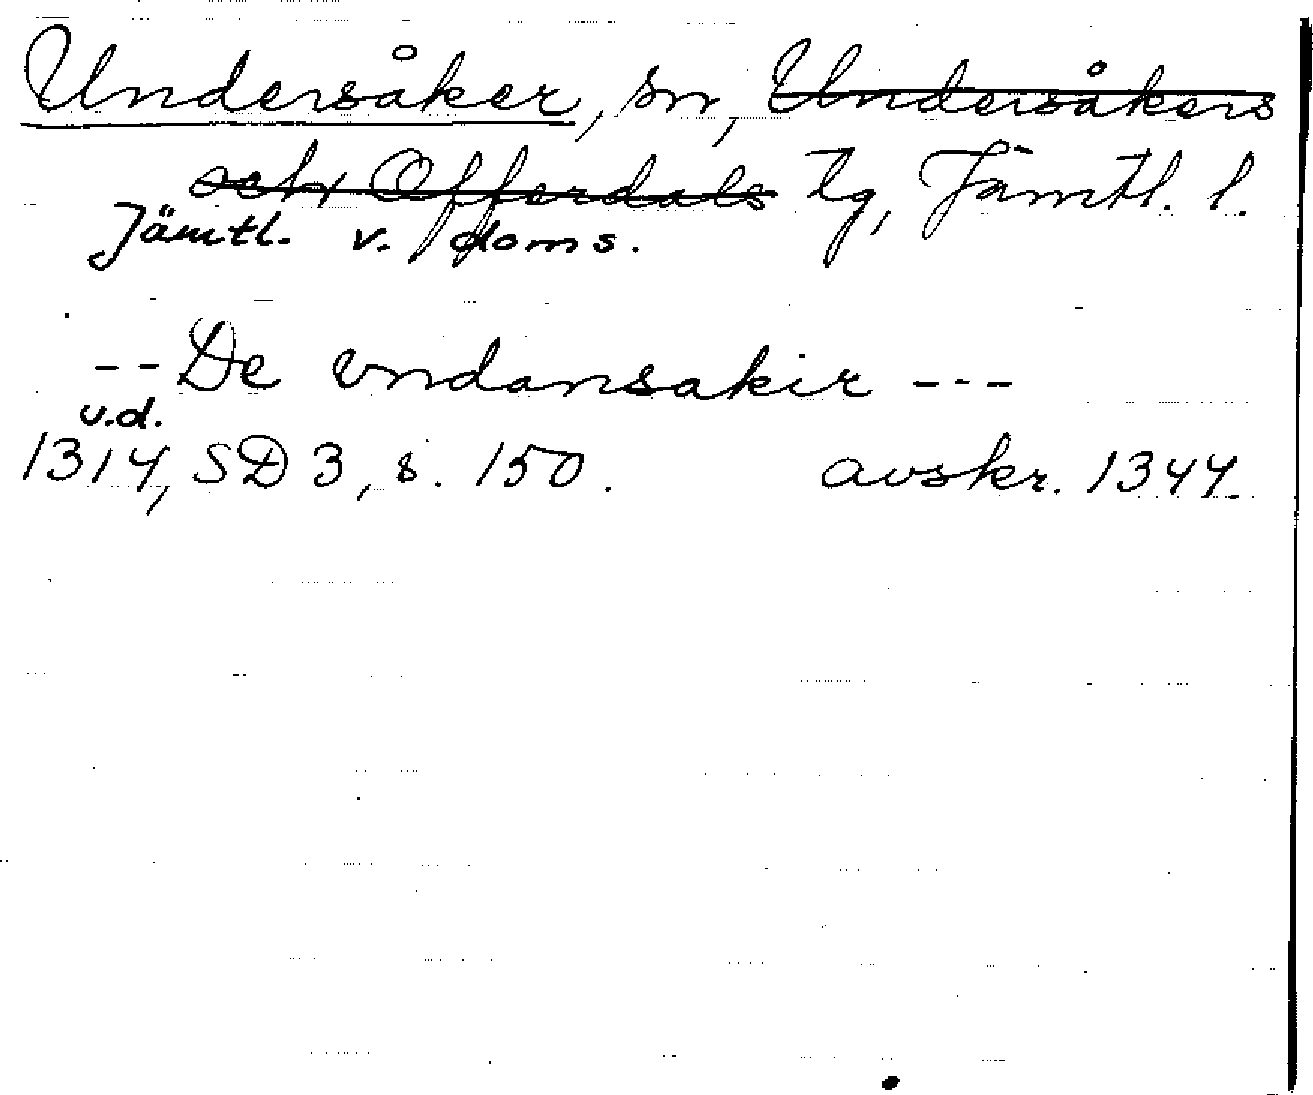 Undersåker, sn, Undersåkers
och Offerdals tg, Jämtl. l.
Jämtl. v. doms.
-- De vndansakir ---
u.d.
1314, SD 3, s. 150. avskr. 1344.